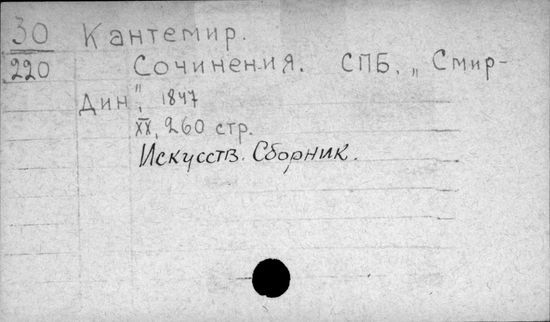 30 Кантемир.
220 Сочинения. СПБ. „Смир-
дин", 1847
XX, 260 стр.
Искусств. Сборник.